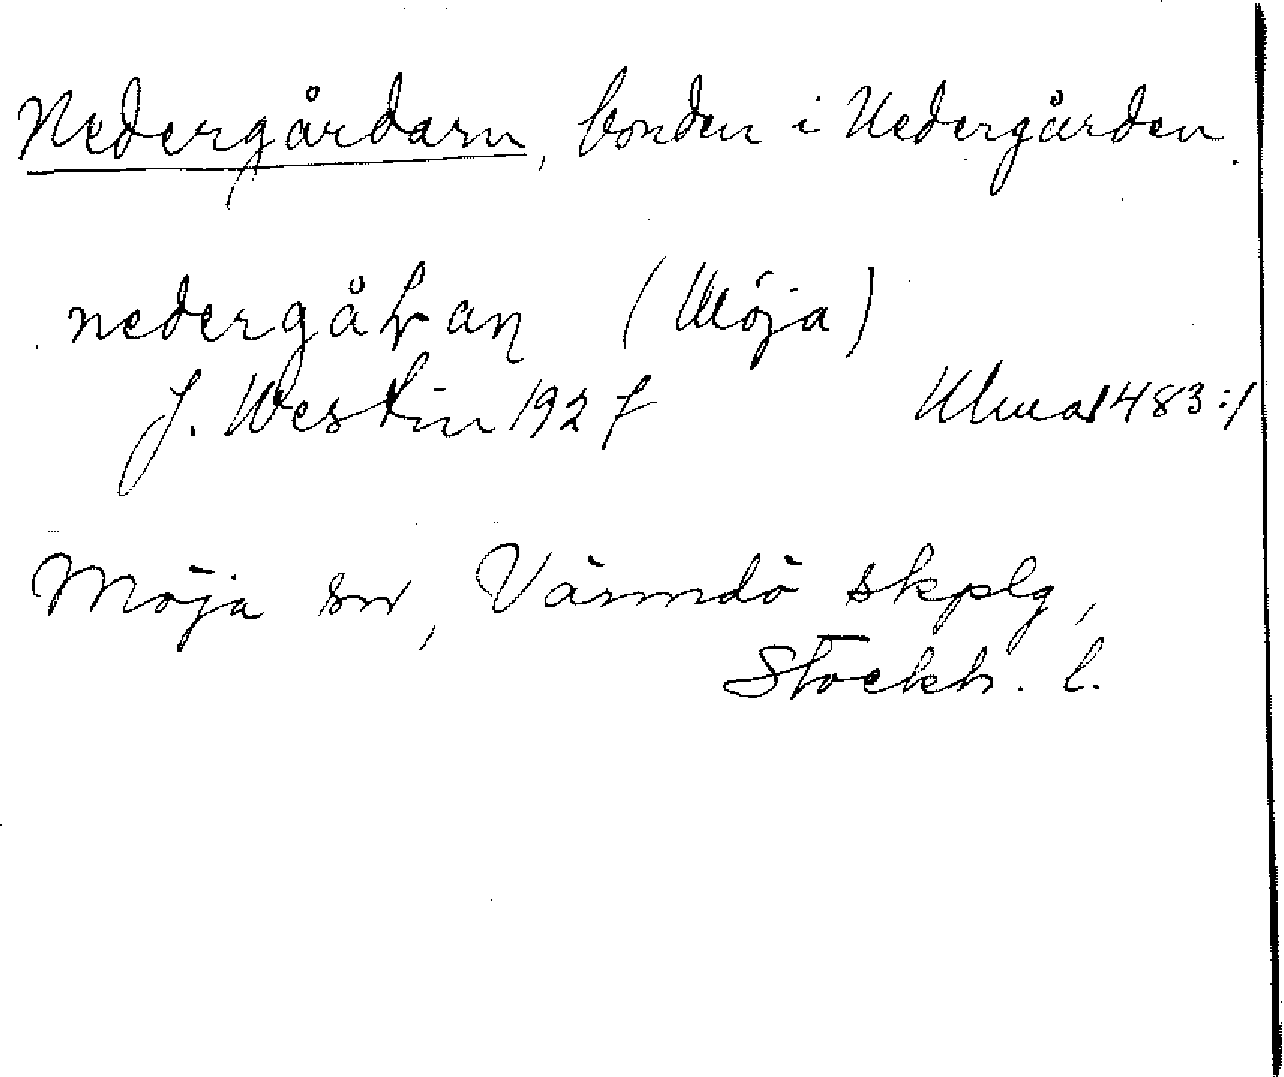 Nedergårdarn, bonden i Nedergården.
(Möja)
J. Westin 1927 Ulma 1483:1
Möja sn, Värmdö skplg,
Stockh. l.